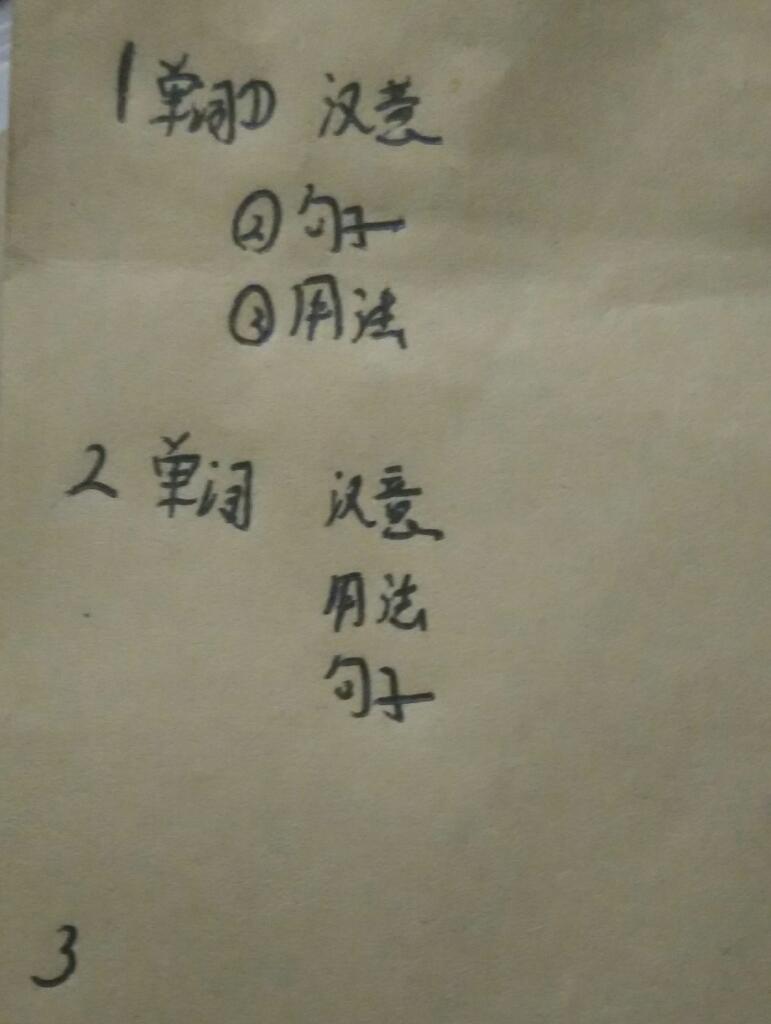 1 单词① 汉意
② 句子
③ 用法
2 单词 汉意
用法
句子
3